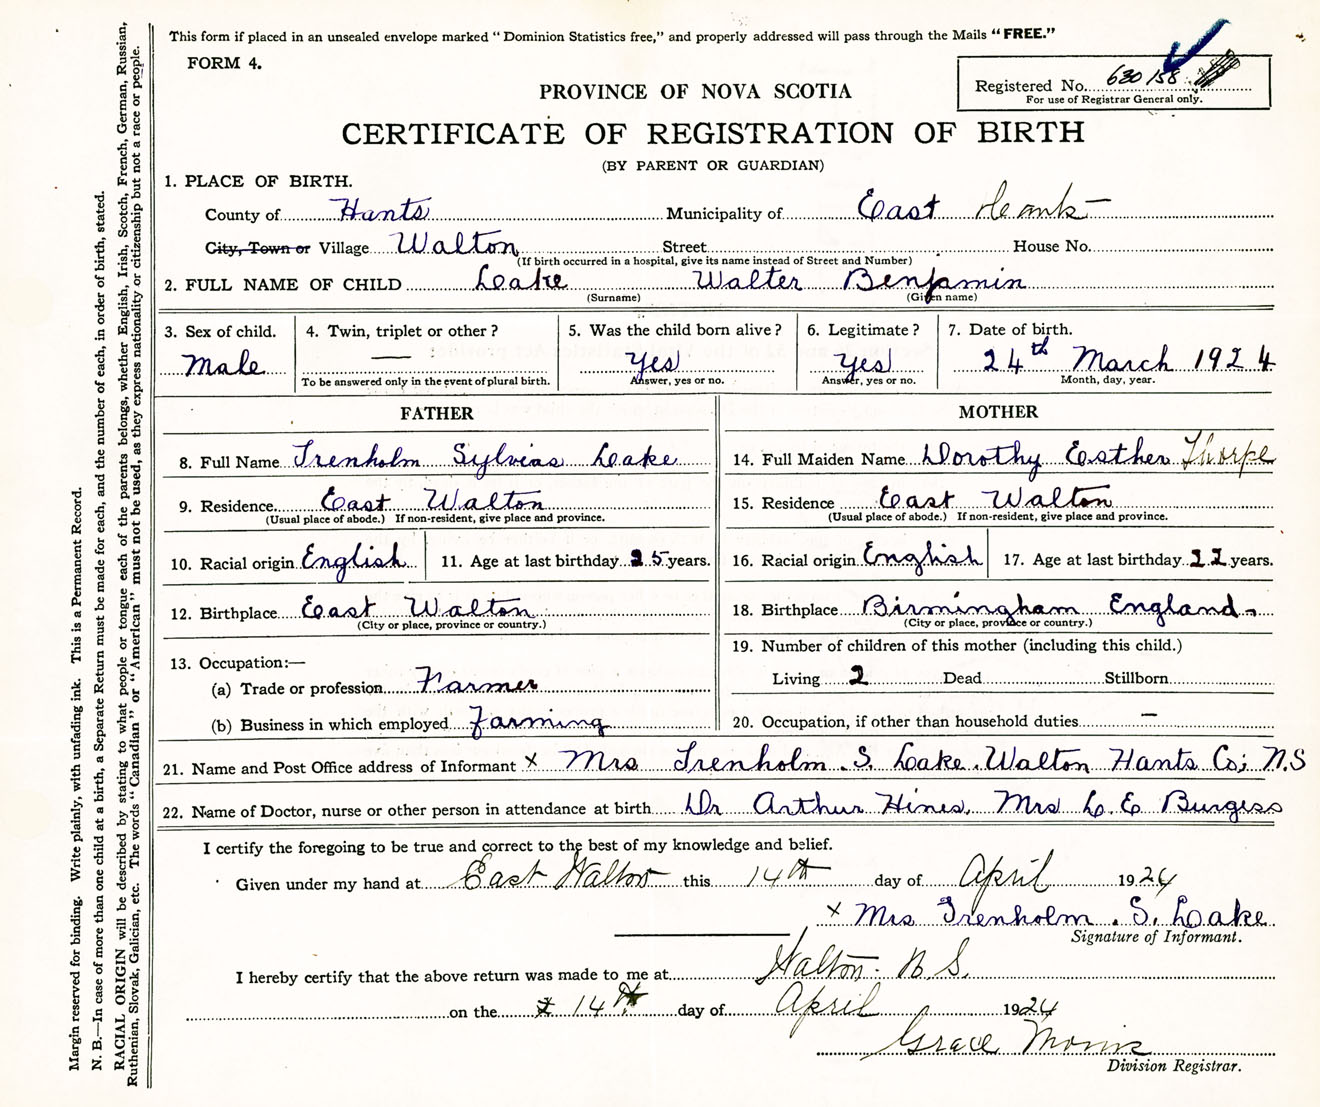 This form if placed in an unsealed envelope marked "Dominion Statistics free," and properly addressed will pass through the Mails "FREE."
FORM 4.
Registered No. 630158
For use of Registrar General only.
PROVINCE OF NOVA SCOTIA
CERTIFICATE OF REGISTRATION OF BIRTH
(BY PARENT OR GUARDIAN)
1. PLACE OF BIRTH.
County of Hants Municipality of East Hants
City, Town or Village Walton Street House No.
(If birth occurred in a hospital, give its name instead of Street and Number)
2. FULL NAME OF CHILD Lake Walter Benjamin
(Surname) (Given name)
3. Sex of child. 4. Twin, triplet or other? 5. Was the child born alive? 6. Legitimate? 7. Date of birth.
Male — Yes Yes 24th March 1924
To be answered only in the event of plural birth. Answer, yes or no. Answer, yes or no. Month, day, year.
FATHER
8. Full Name Trenholm Sylvias Lake
9. Residence East Walton
(Usual place of abode.) If non-resident, give place and province.
10. Racial origin English 11. Age at last birthday 25 years.
12. Birthplace East Walton
(City or place, province or country.)
13. Occupation:—
(a) Trade or profession Farmer
(b) Business in which employed Farming
MOTHER
14. Full Maiden Name Dorothy Esther Thorpe
15. Residence East Walton
(Usual place of abode.) If non-resident, give place and province.
16. Racial origin English 17. Age at last birthday 22 years.
18. Birthplace Birmingham England
(City or place, province or country.)
19. Number of children of this mother (including this child.)
Living 2 Dead Stillborn
20. Occupation, if other than household duties —
21. Name and Post Office address of Informant x Mrs Trenholm . S. Lake . Walton Hants Co; N.S
22. Name of Doctor, nurse or other person in attendance at birth Dr Arthur Hines, Mrs L. E Burgess
I certify the foregoing to be true and correct to the best of my knowledge and belief.
Given under my hand at East Walton this 14th day of April 1924
x Mrs Trenholm . S. Lake
Signature of Informant.
I hereby certify that the above return was made to me at Walton N.S.
on the 14th day of April 1924
Grace Morris
Division Registrar.
Margin reserved for binding. Write plainly, with unfading ink. This is a Permanent Record.
N. B.—In case of more than one child at a birth, a Separate Return must be made for each, and the number of each, in order of birth, stated.
RACIAL ORIGIN will be described by stating to what people or tongue each of the parents belongs, whether English, Irish, Scotch, French, German, Russian,
Ruthenian, Slovak, Galician, etc. The words "Canadian" or "American" must not be used, as they express nationality or citizenship but not a race or people.